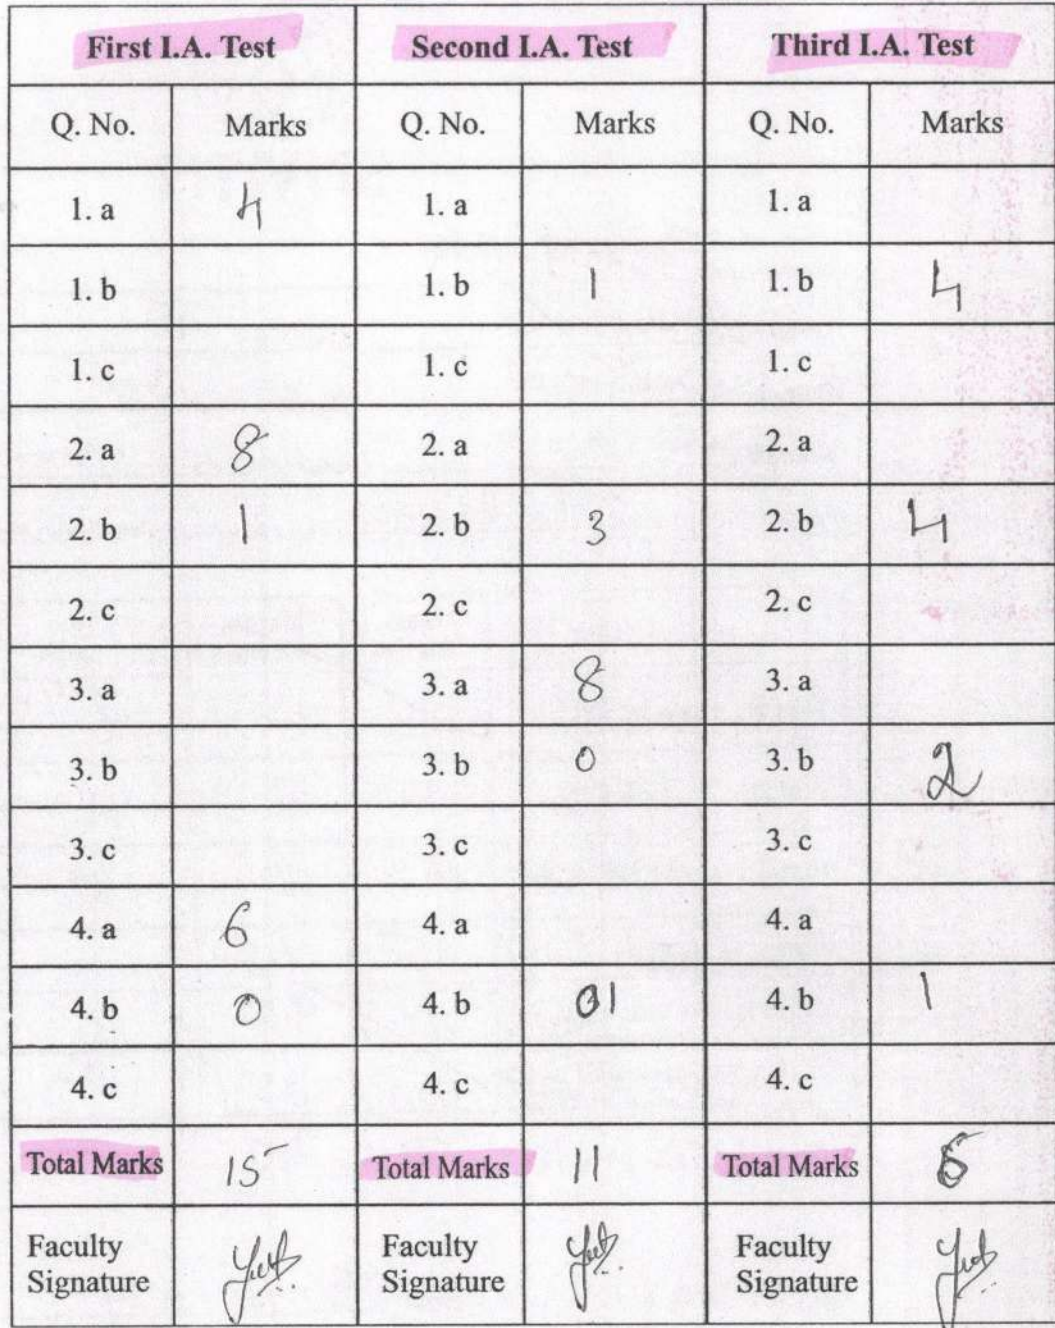 First I.A. Test Second I.A. Test Third I.A. Test
Q. No. Marks Q. No. Marks Q. No. Marks
1. a 4 1. a 1. a
1. b 1. b 1 1. b 4
1. c 1. c 1. c
2. a 8 2. a 2. a
2. b 1 2. b 3 2. b 4
2. c 2. c 2. c
3. a 3. a 8 3. a
3. b 3. b 0 3. b 2
3. c 3. c 3. c
4. a 6 4. a 4. a
4. b 0 4. b 01 4. b 1
4. c 4. c 4. c
Total Marks 15 Total Marks 11 Total Marks
Faculty Faculty Faculty
Signature Signature Signature